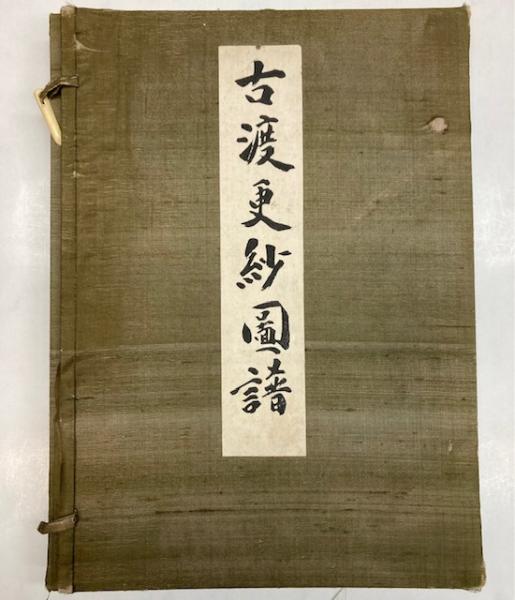 古渡更紗圖譜